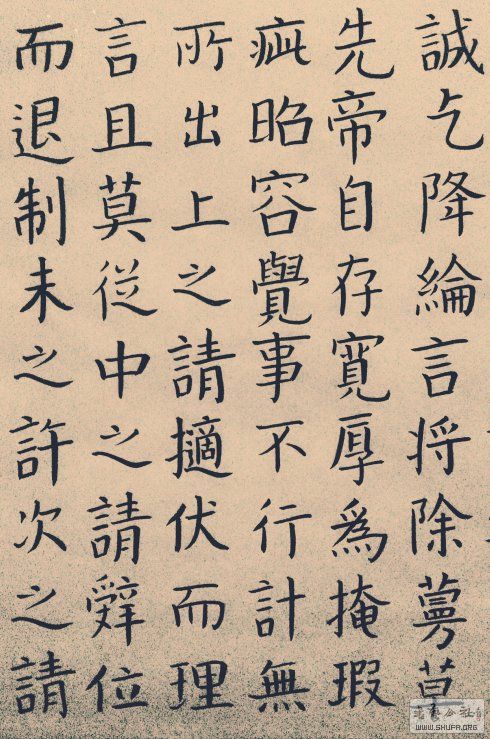 誠乞降綸言将除蔓草
先帝自存寬厚爲掩瑕
疵昭容覺事不行計無
所出上之請擿伏而理
言且莫從中之請辭位
而退制未之許次之請
WWW.SHUFA.ORG